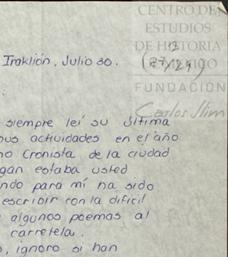 CENTRO DE
ESTUDIOS
DE HISTORIA
DE MÉXICO
FUNDACIÓN
Carlos Slim
Iraklión, Julio 30.
siempre leí su última
sus actividades en el año
mo Cronista de la ciudad
gan estaba usted
ndo para mí ha sido
escribir con la difícil
algunos poemas al
carretela.
, ignoro si han